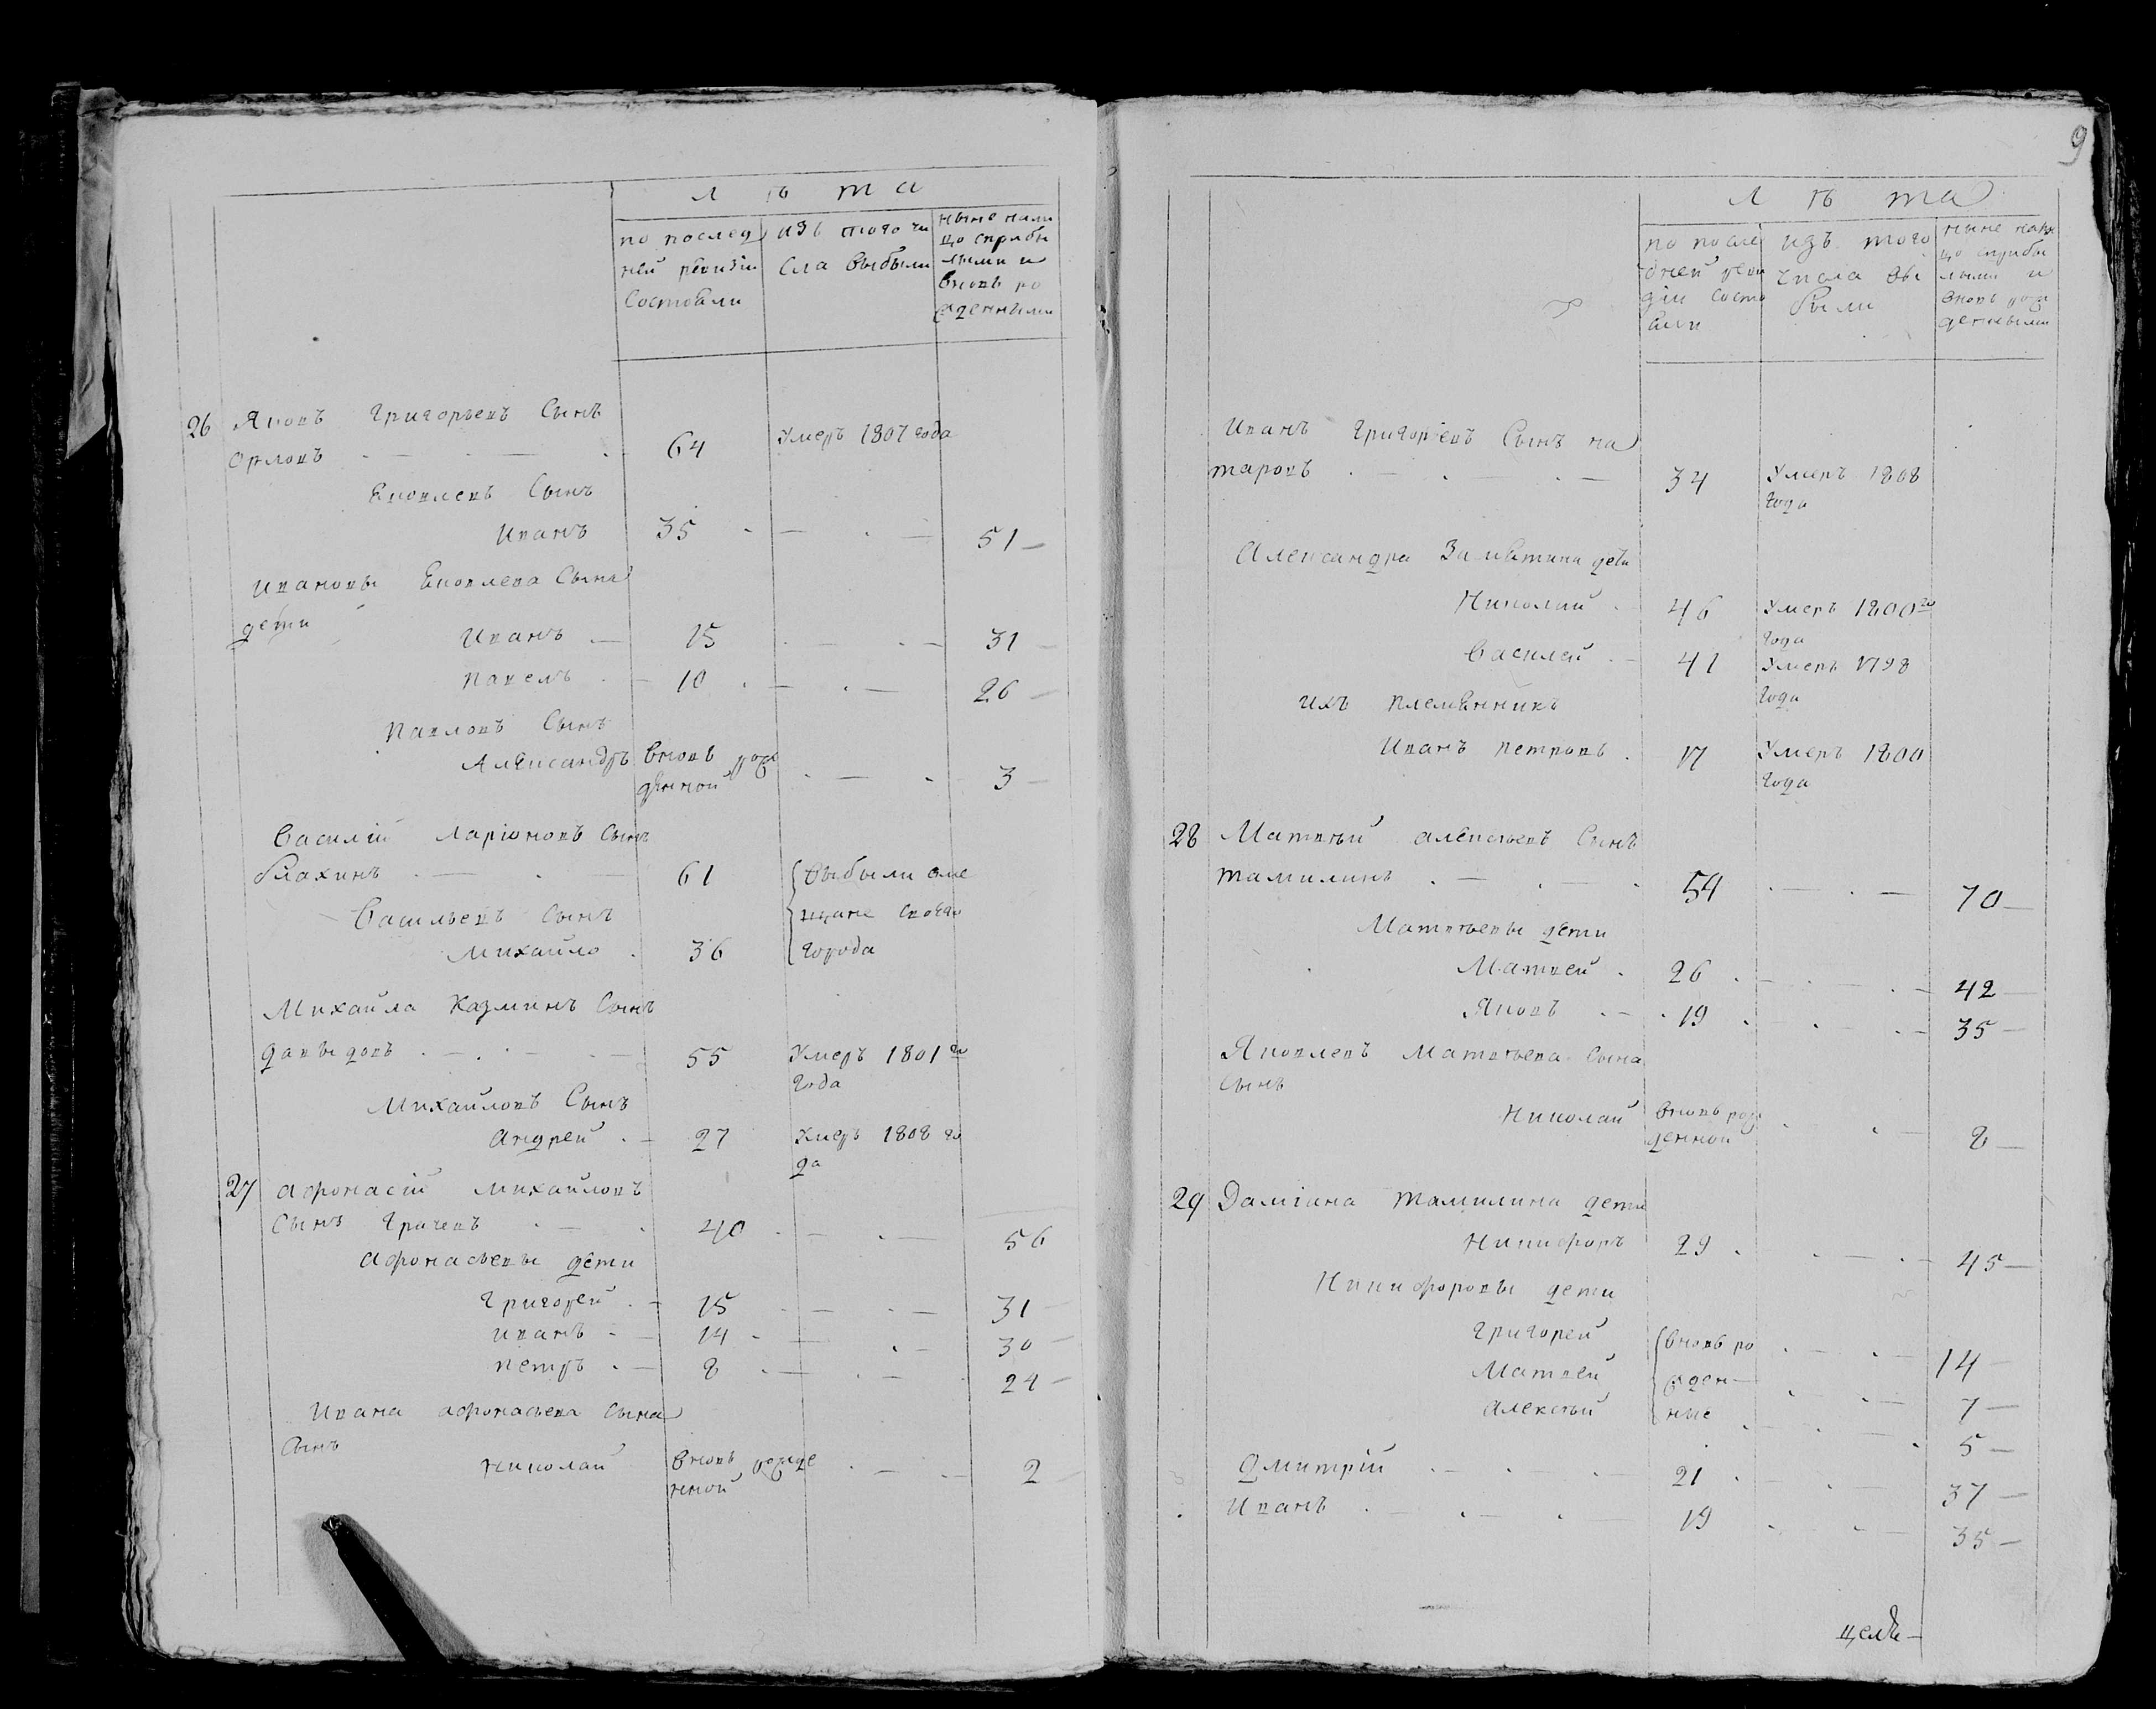 Лѣта
по послед
ней ревизіи
состояли
изъ того чи
сла выбыли
ныне нали
цо с прибы
лыми и
вновь ро
жденными
26 Яковъ Григорьевъ Сынъ
Орловъ 64 Умеръ 1807 года
Яковлевъ Сынъ
Иванъ 35 51
Ивановы Яковлева Сына
дети
Иванъ 15 31
Павелъ 10 26
Павловъ Сынъ
Александръ вновь рож
денной 3
Василій Ларіоновъ Сынъ
Блахинъ 61 выбыли вме
щане
Васильевъ Сынъ
Михайло 36 города
Михайла Казминъ Сынъ
Давыдовъ 55 Умеръ 1801го
года
Михайловъ Сынъ
Андрей 27 Умеръ 1808 го
да
27 Афонасій Михайловъ
Сынъ Грачевъ 40 56
Афонасьевы дети
Григорей 15 31
Иванъ 14 30
Петръ 8 24
Ивана Афонасьева Сына
Сынъ
Николай вновь рожде
нной 2
9
Лѣта
по после
дней реви
зіи состо
яли
изъ того
числа вы
были
ныне нали
цо с прибы
лыми и
вновь рож
денными
Иванъ Григоріевъ Сынъ ка
таровъ 34 Умеръ 1808
года
Александра Замятина дети
Николай 46 Умеръ 1800го
года
Василей 41 Умеръ 1798
года
ихъ племянникъ
Иванъ Петровъ 17 Умеръ 1800
года
28 Матвей Алексѣевъ Сынъ
Тамилинъ 54 70
Матвѣевы дети
Матвей 26 42
Яковъ 19 35
Яковлевъ Матвѣева Сына
Сынъ
Николай вновь рож
денной 8
29 Даміана Тамилина дети
Никифоръ 29 45
Никифоровы дети
Григорей вновь ро 14
Матвей жден 7
Алексѣй ные 5
Дмитрій 21 37
Иванъ 19 35